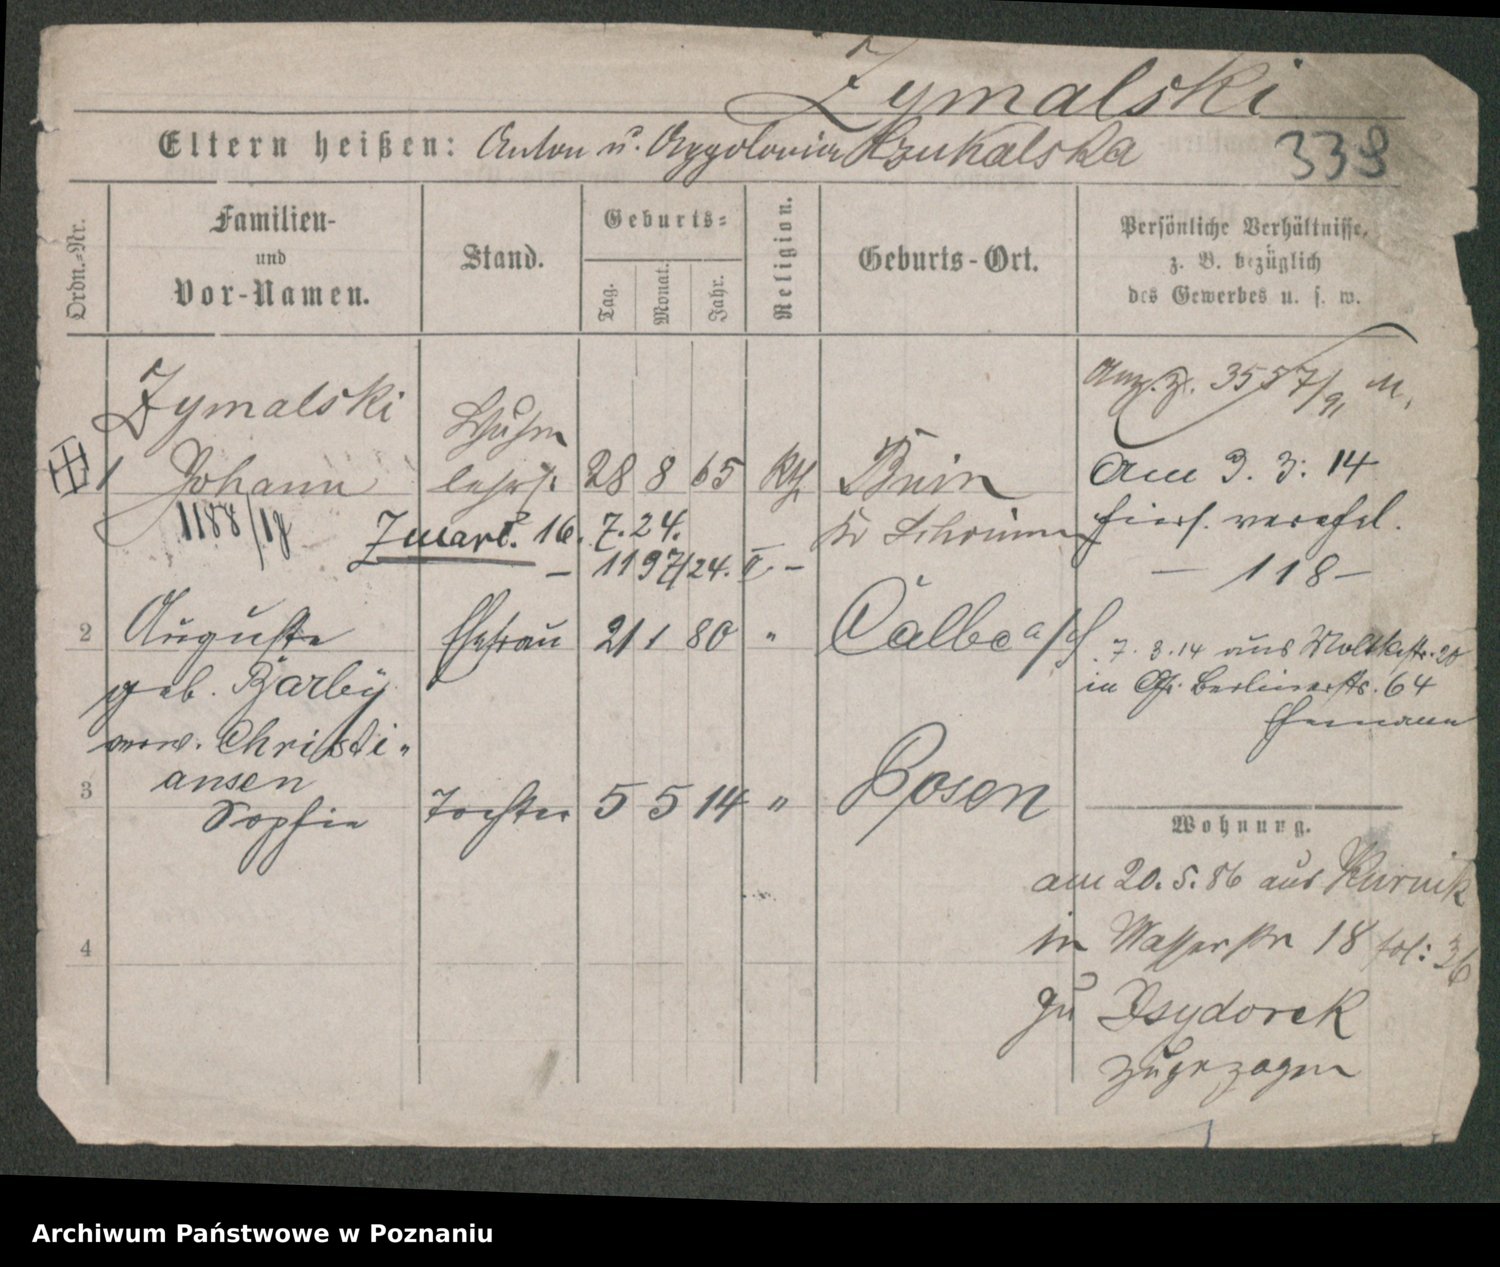 Zymalski
Eltern heißen: Anton u. Apolonia Krzukalska 339
Ordn.-Nr.
Familien-
und
Vor-Namen.
Stand.
Geburts-
Tag.
Monat.
Jahr.
Religion.
Geburts-Ort.
Persönliche Verhältnisse,
z. B. bezüglich
des Gewerbes u. s. w.
Zymalski
1 Johann 28 8 65 kth Bnin
Kr Schrimm
1188/18
16. 7. 24.
– 1197/24. II –
Anz. z. 3557/91 M.
Am 3. 3. 14
hiers. verehel.
– 118 –
2 Auguste Ehefrau 21 1 80 " Calbe a/S
geb. Barby
verw. Christi-
ansen
7. 3. 14 aus Moltkestr. 20
in Berlinerstr. 64
Ehemann
3 Sophie Tochter 5 5 14 " Posen
4
Wohnung.
am 20. 5. 86 aus Kurnik
in Wasserstr 18 fol: 36
zu Isydorek
zugezogen
Archiwum Państwowe w Poznaniu